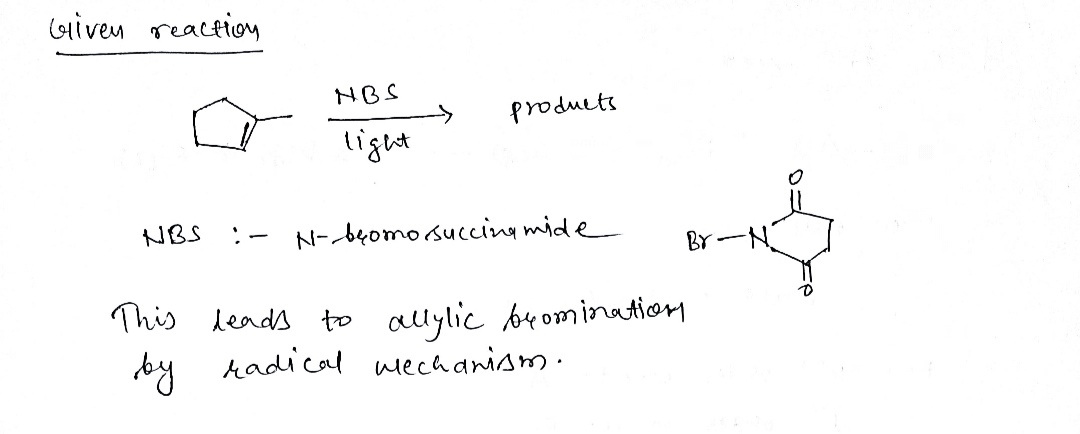 Given reaction
NBS
light
products
NBS :- N-bromosuccinamide
Br-N
O
O
This leads to allylic bromination
by radical mechanism.